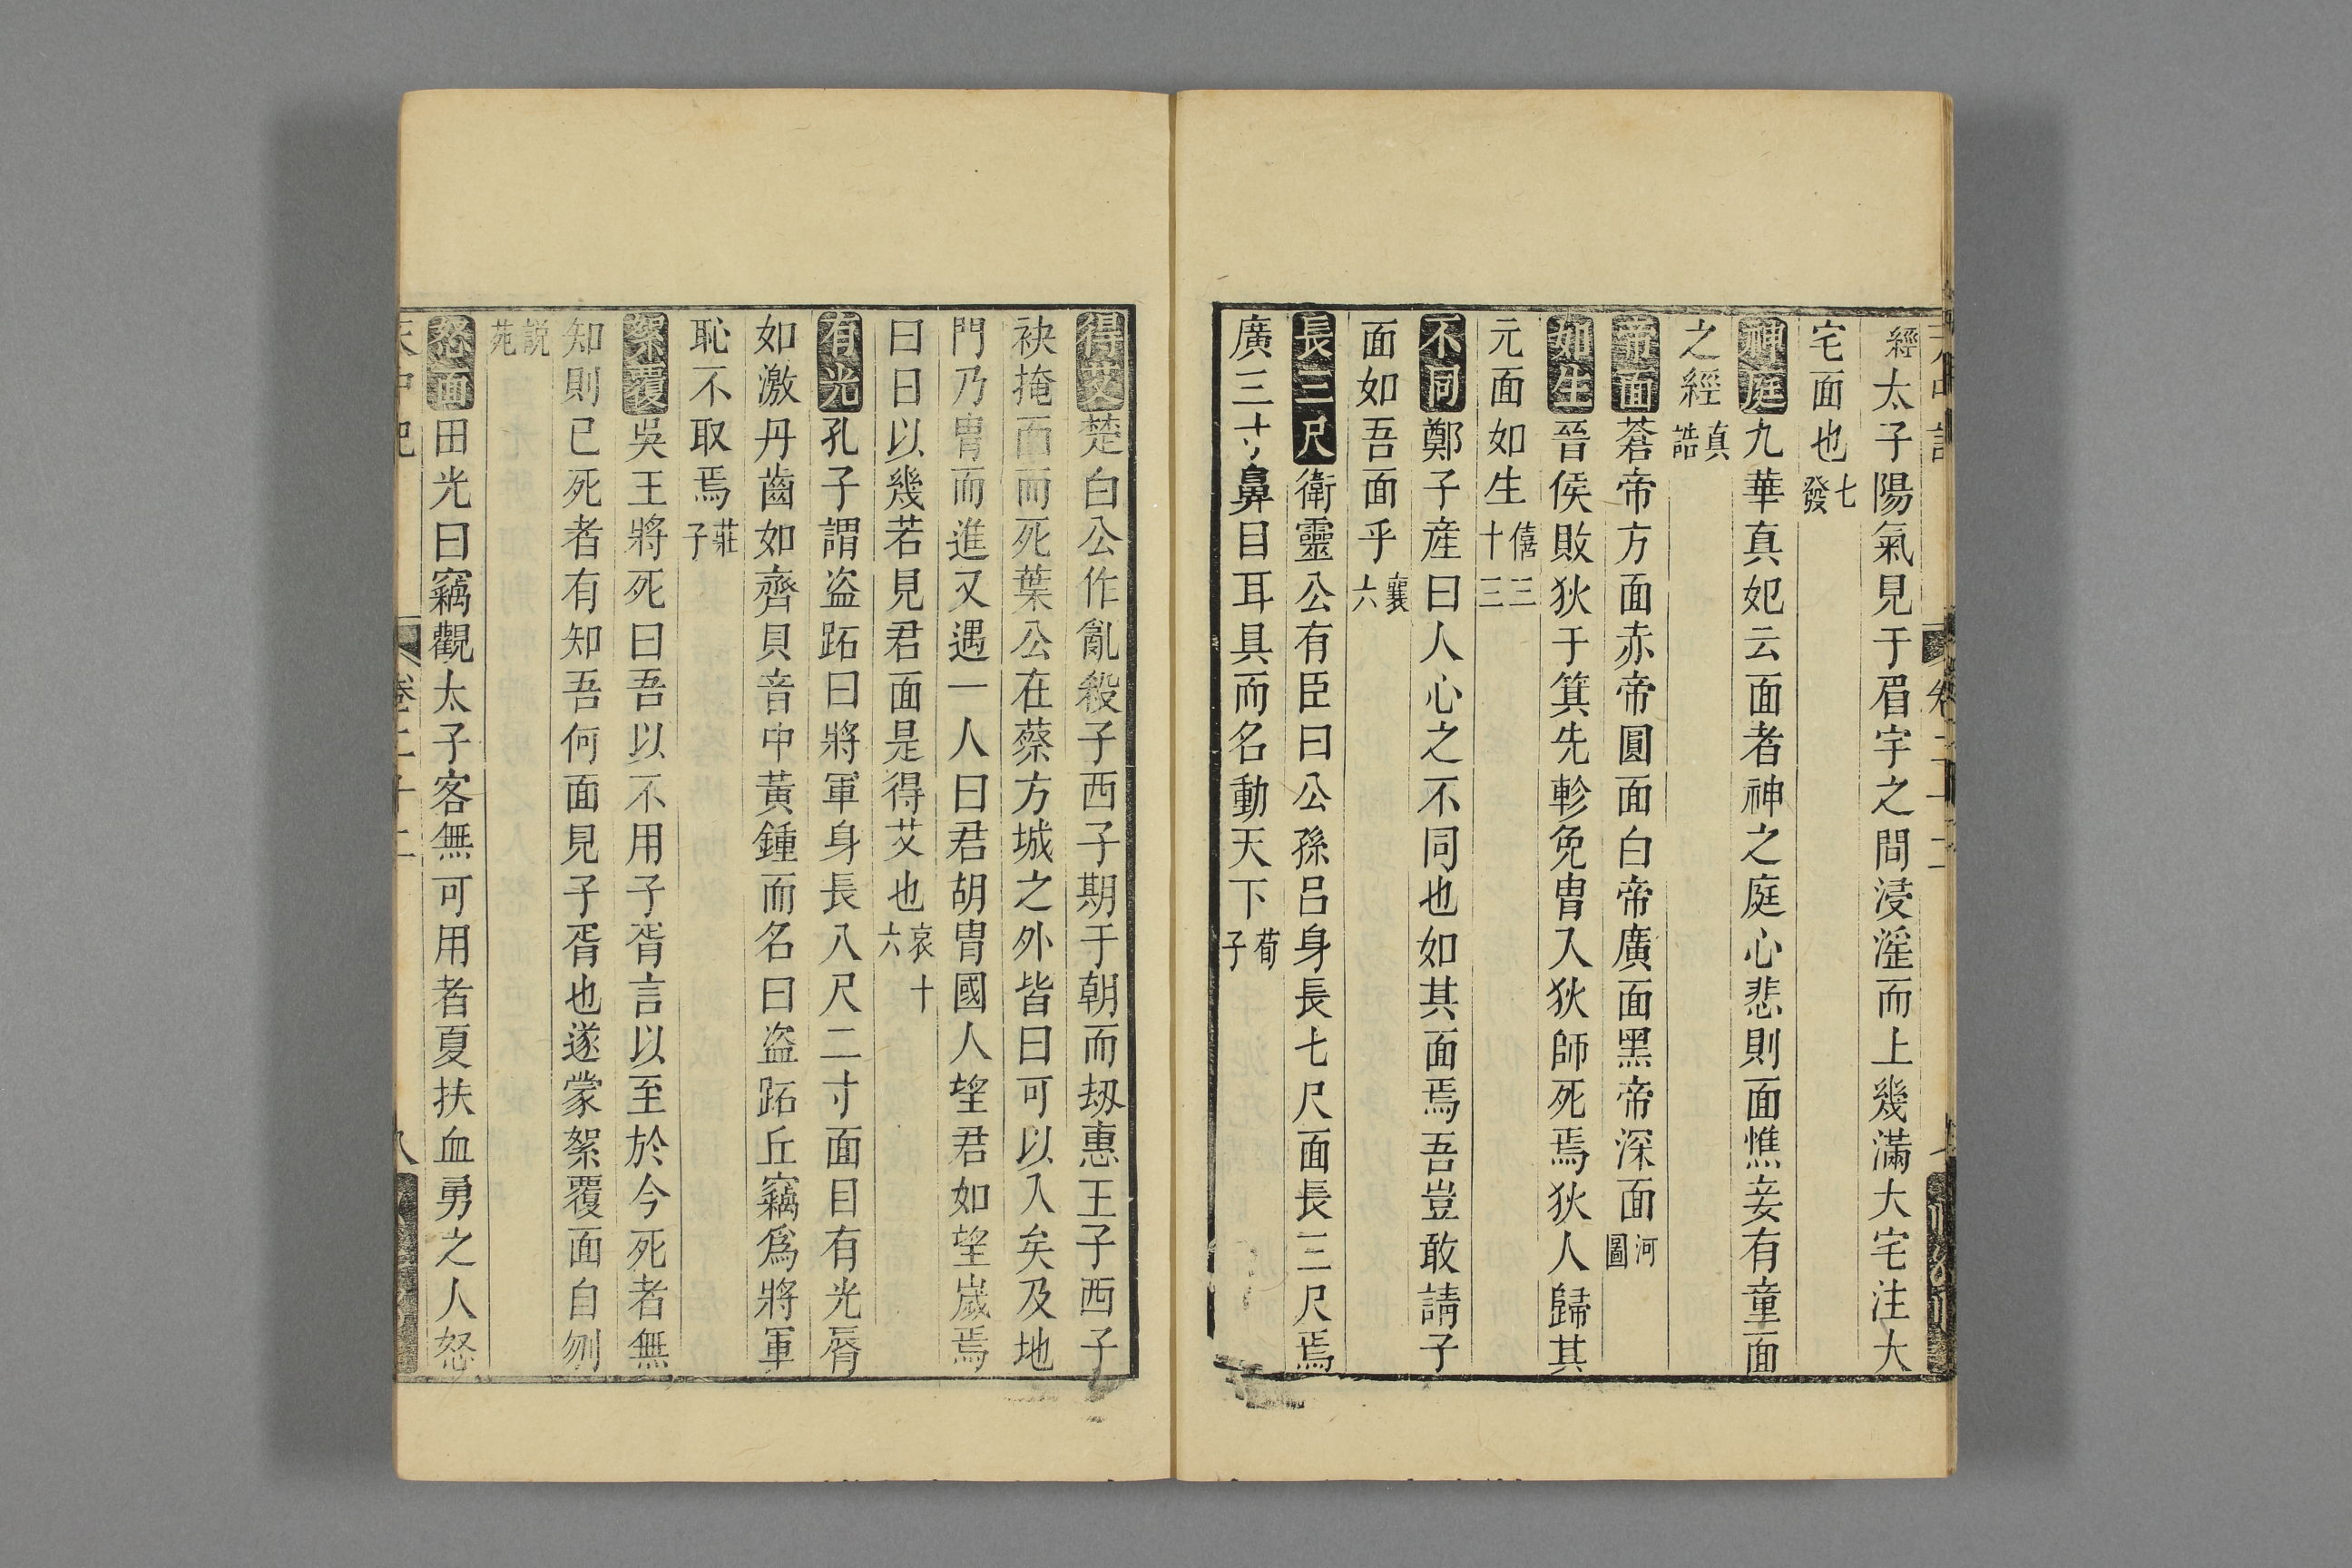 經太子陽氣見于眉宇之間浸淫而上幾滿大宅注大
宅面也七發
神庭九華真妃云面者神之庭心悲則面憔妾有童面
之經真誥
帝面蒼帝方面赤帝圓面白帝廣面黑帝深面河圖
如生晉侯敗狄于箕先軫免冑入狄師死焉狄人歸其
元面如生僖三十三
不同鄭子產曰人心之不同也如其面焉吾豈敢請子
面如吾面乎襄六
長三尺衛靈公有臣曰公孫呂身長七尺面長三尺焉
廣三寸鼻目耳具而名動天下荀子
得艾楚白公作亂殺子西子期于朝而刼惠王子西子
袂掩面而死葉公在蔡方城之外皆曰可以入矣及地
門乃冑而進又遇一人曰君胡冑國人望君如望歲焉
曰日以幾若見君面是得艾也哀十六
有光孔子謂盗跖曰將軍身長八尺二寸面目有光脣
如激丹齒如齊貝音中黃鍾而名曰盗跖丘竊爲將軍
恥不取焉莊子
絮覆吳王將死曰吾以不用子胥言以至於今死者無
知則已死者有知吾何面見子胥也遂蒙絮覆面自刎
説苑
怒面田光曰竊觀太子客無可用者夏扶血勇之人怒
卷二十二
八